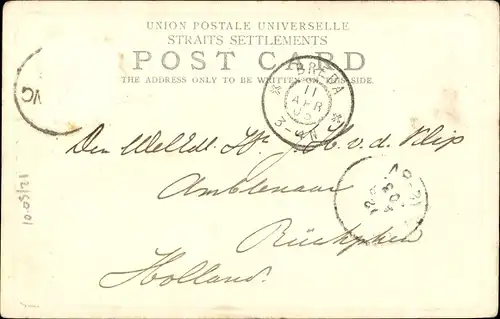 UNION POSTALE UNIVERSELLE
STRAITS SETTLEMENTS
POST CARD
THE ADDRESS ONLY TO BE WRITTEN ON THIS SIDE.
BREDA
11
APR
3-4N
VG
Den Weled. Hr. J. H. v. d. Klip
Ambtenaar
Holland.
10-05/21